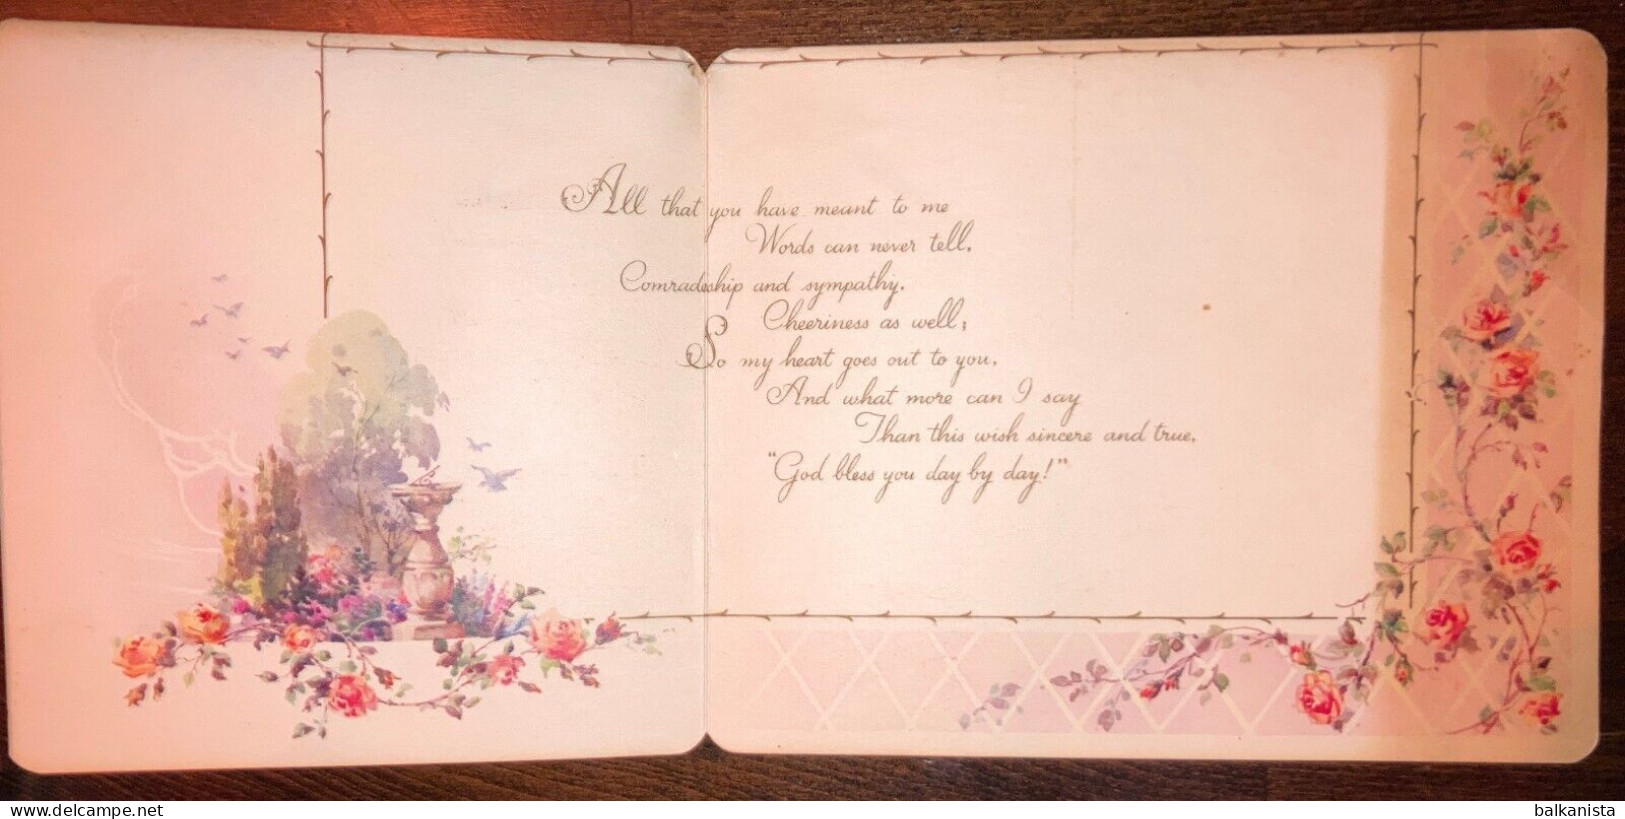 All that you have meant to me
Words can never tell,
Comradeship and sympathy,
Cheeriness as well;
So my heart goes out to you,
And what more can I say
Than this wish sincere and true,
"God bless you day by day!"
www.delcampe.net
balkanista